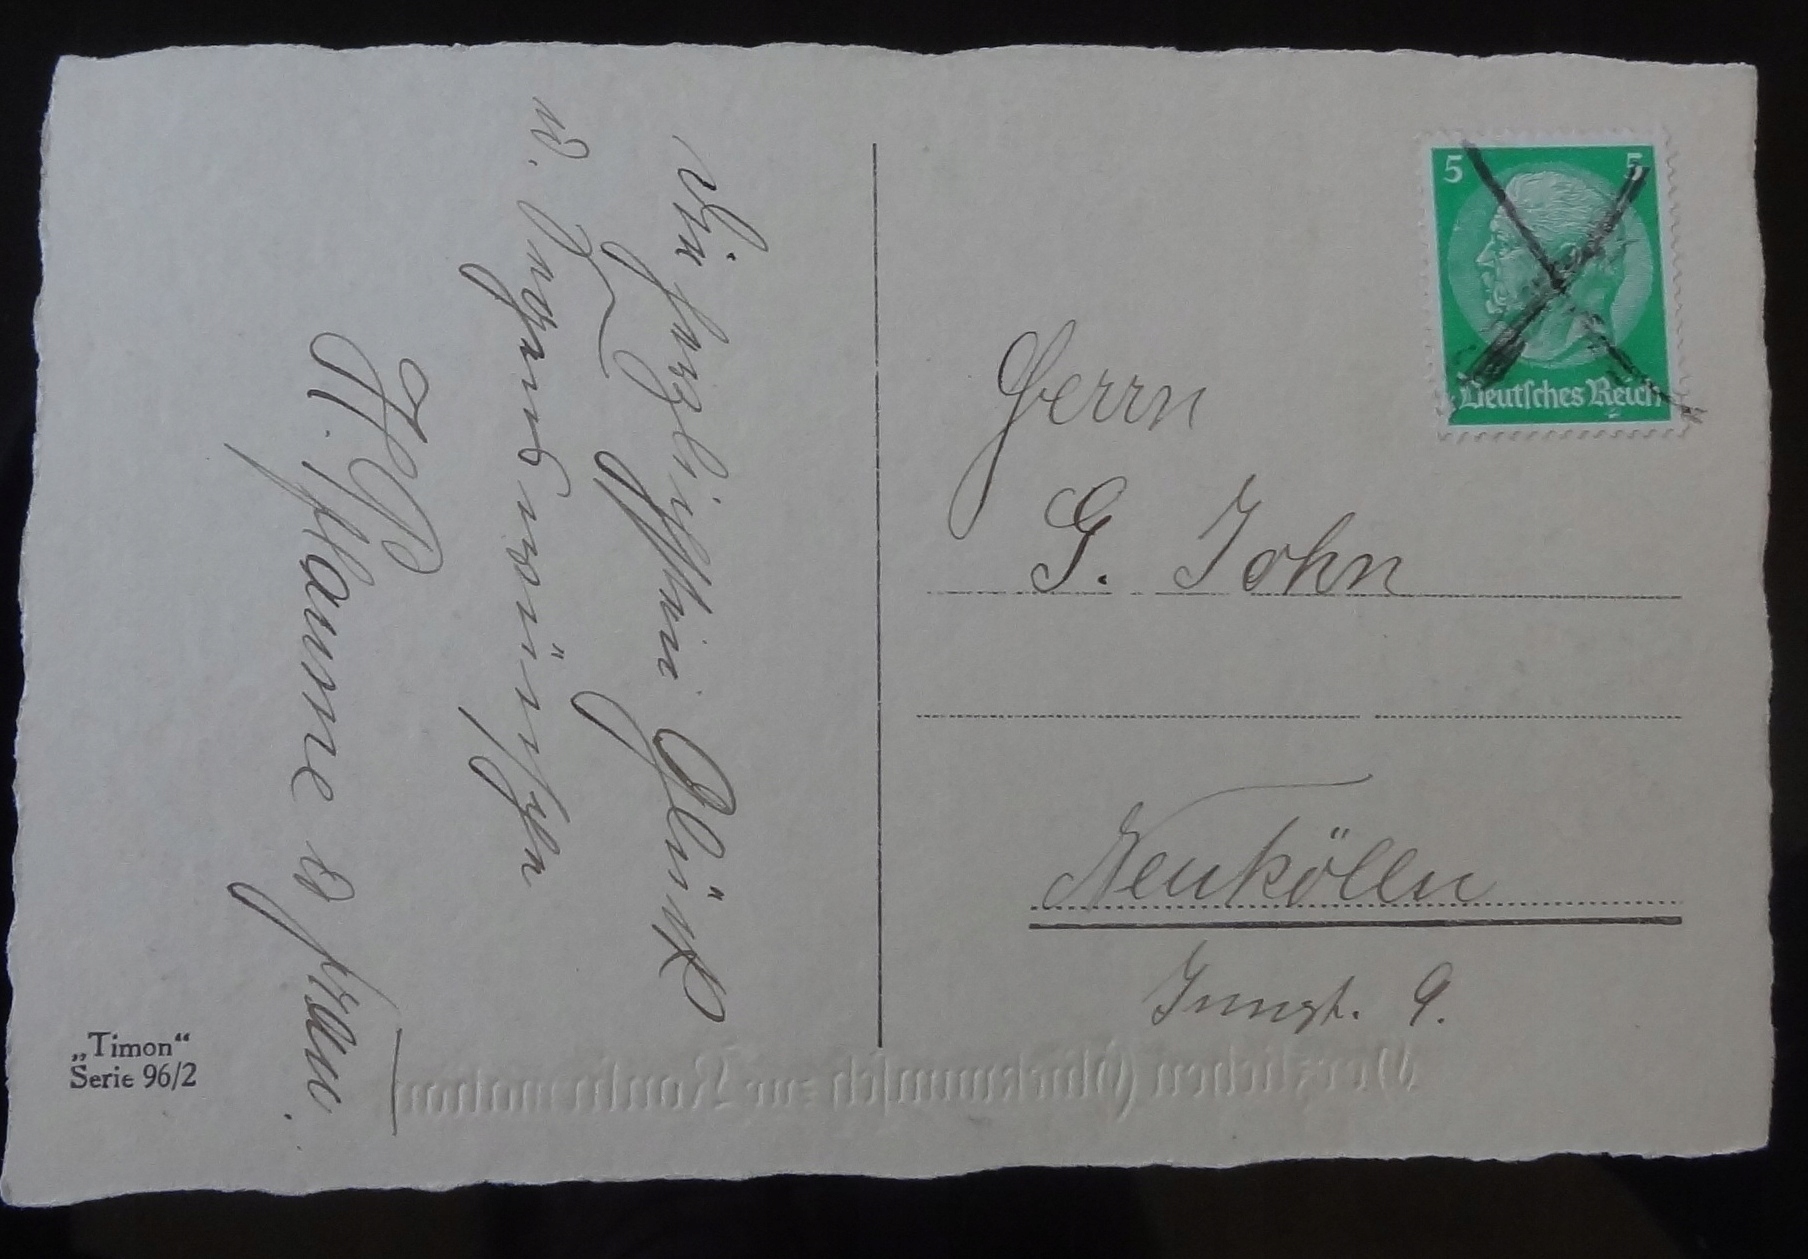 Die herzlichsten Glück
u. Segenswünsche
H. Pflaume u Frau.
5 5
Deutsches Reich
Herrn
G. John
Neukölln
Innst. 9.
„Timon“
Serie 96/2
Herzlichen Glückwunsch zur Konfirmation